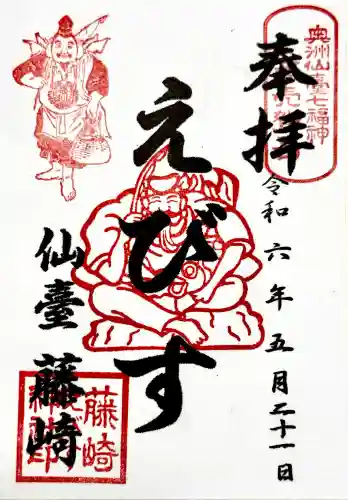 奉拝
奥州仙臺七福神
令和六年五月二十一日
えびす
仙臺 藤崎
藤崎